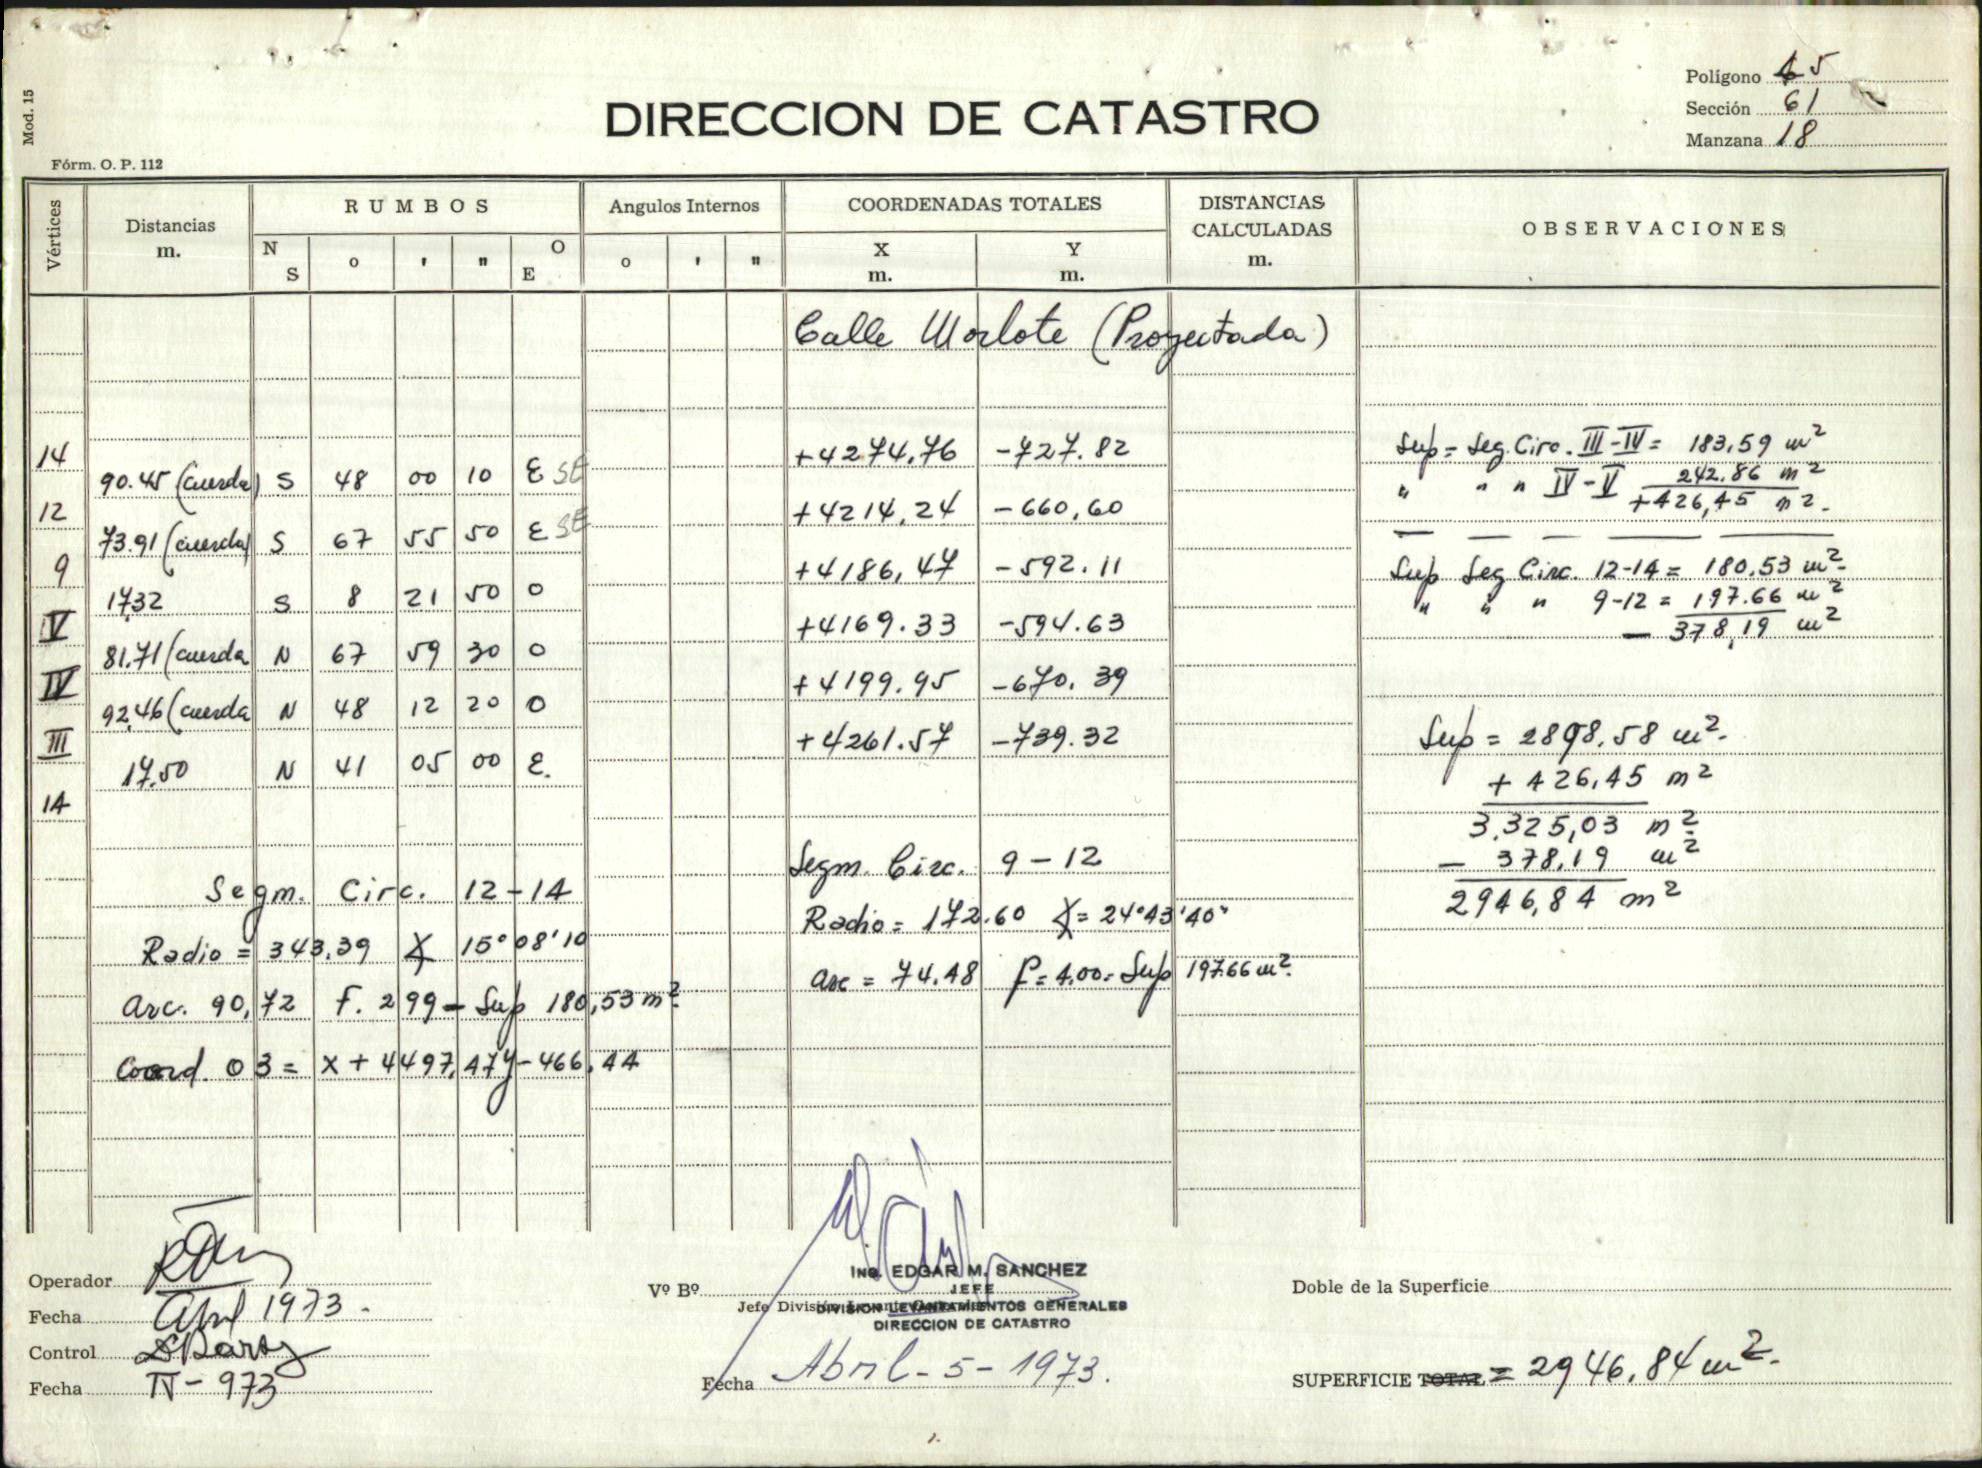 Mod. 15
Fórm. O. P. 112
DIRECCION DE CATASTRO
Polígono 5
Sección 61
Manzana 18
Vértices
Distancias m.
RUMBOS
N S o ' " O E
Angulos Internos
o ' "
COORDENADAS TOTALES
X m. Y m.
DISTANCIAS CALCULADAS m.
OBSERVACIONES
Calle Morlote (Proyectada)
14 +4274,76 -727.82
90.45 (cuerda) S 48 00 10 E SE
12 +4214,24 -660,60
73.91 (cuerda) S 67 55 50 E SE
9 +4186,47 -592.11
17,32 S 8 21 50 O
V +4169.33 -594.63
81.71 (cuerda N 67 59 30 O
IV +4199.95 -670.39
92,46 (cuerda N 48 12 20 O
III +4261.57 -739.32
17.50 N 41 05 00 E.
14
Sup = Seg. Circ. III-IV = 183,59 m²
" " " IV-V 242.86 m²
+426,45 m².
Sup Seg Circ. 12-14 = 180.53 m².
" " " 9-12 = 197.66 m²
- 378,19 m²
Sup = 2898,58 m².
+ 426,45 m²
3.325,03 m²
- 378,19 m²
2946,84 m²
Segm. Circ. 12-14
Radio = 343,39 ∡ 15°08'10
Arc. 90,72 F. 2 99 = Sup 180,53 m².
Coord. 03 = x + 4497,47 y - 466,44
Segm. Circ. 9-12
Radio = 172.60 ∡ = 24°43'40"
arc = 74.48 f = 4.00 = Sup 197.66 m².
Operador
Fecha Abril 1973.
Control
Fecha IV-973
Vº Bº
ING. EDGAR M. SANCHEZ
JEFE
DIVISION LEVANTAMIENTOS GENERALES
DIRECCION DE CATASTRO
Fecha Abril-5-1973.
Doble de la Superficie
SUPERFICIE TOTAL = 2946,84 m².